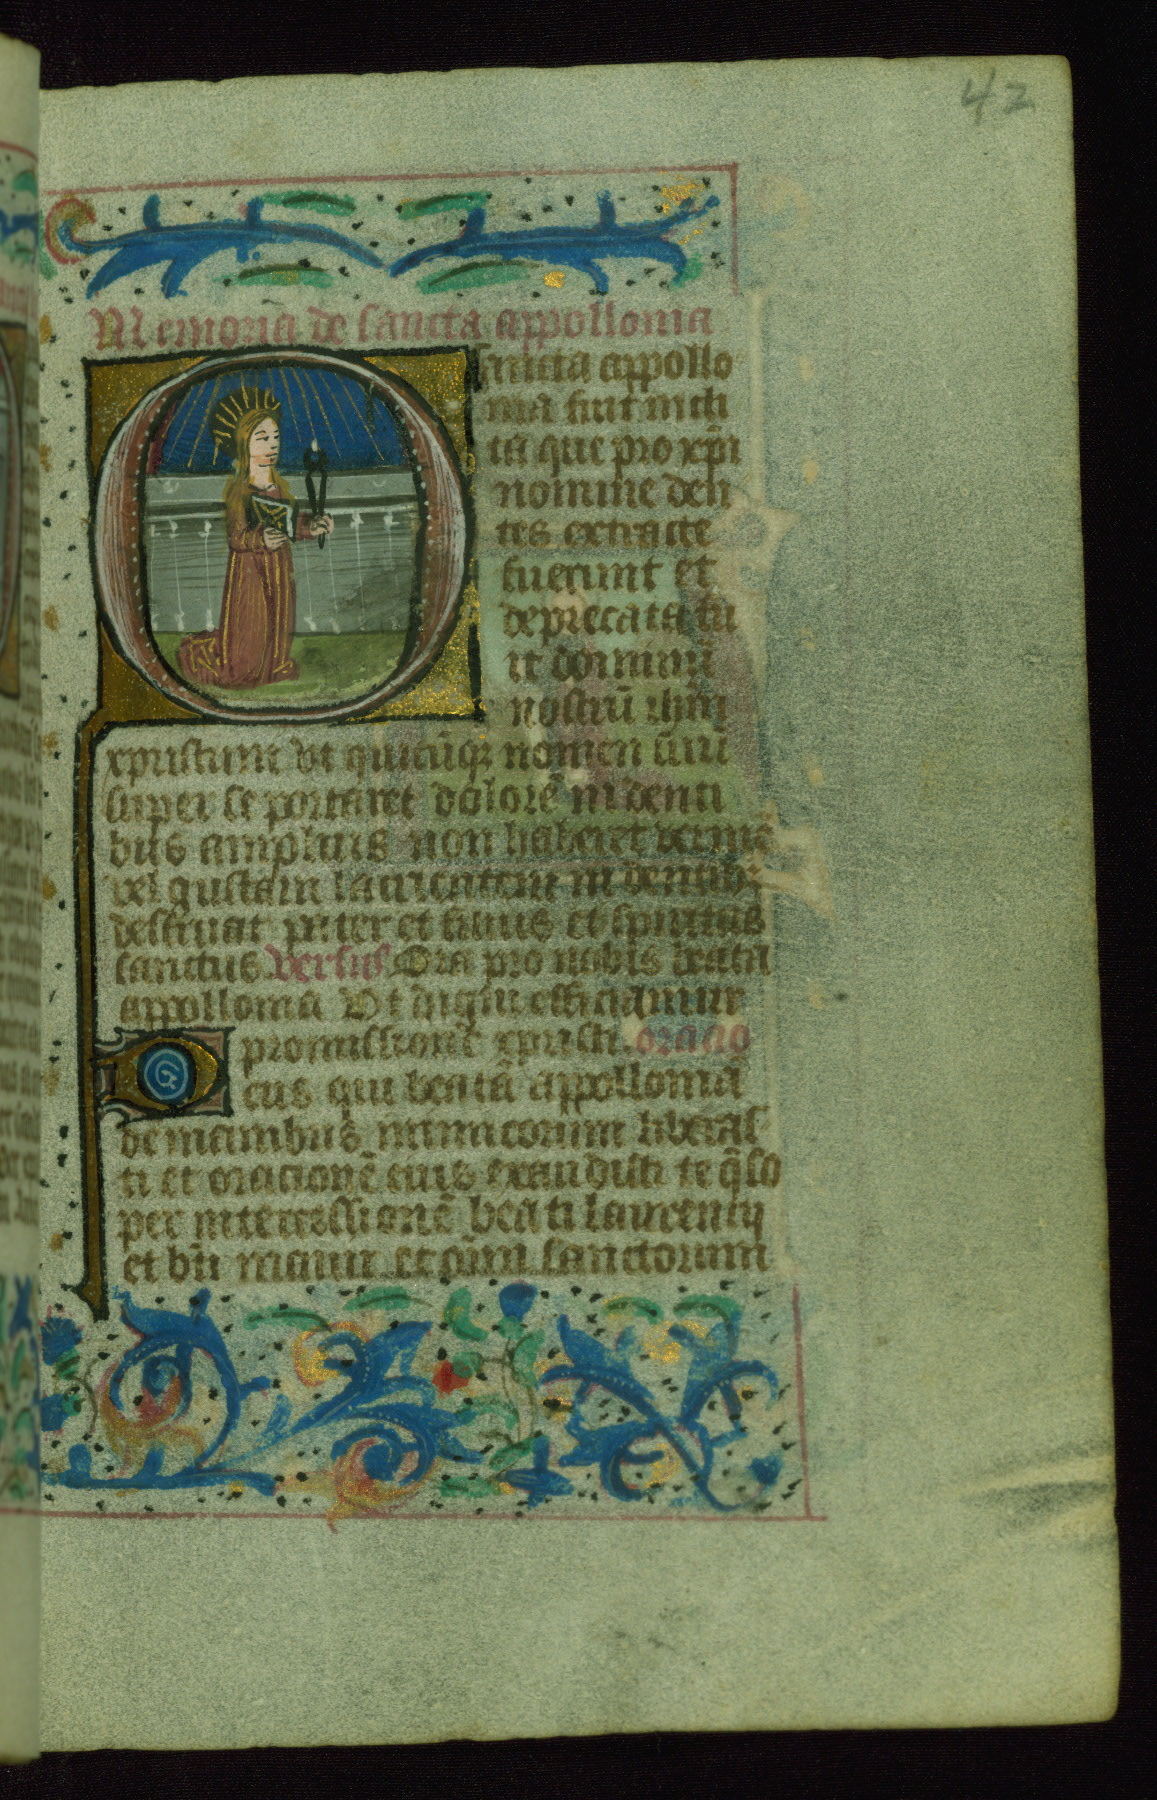 42
Memoria de sancta appollonia
O sancta appollo
nia fuit incli
ta que pro xp̄i
nomine den
tes extracte
fuerunt et
deprecata fu
it dominū
nostrū ihm̄
xpristum vt quicūqꝫ nomen suū
super se portaret dolorē in denti
bus amplius non haberet vermē
vel guttam lacricatem in dentibꝫ
destruat pater et filius et spiritus
sanctus. Versus Ora pro nobis beata
appollonia Vt digni efficiamur
promissionē xpristi. oracio
Deus qui beatā appolloniā
de manibus inimicorum liberas
ti et oracionē eius exaudisti te q̄so
per intercessionē beati laurencij
et bn̄i mauri et om̄i sanctorum